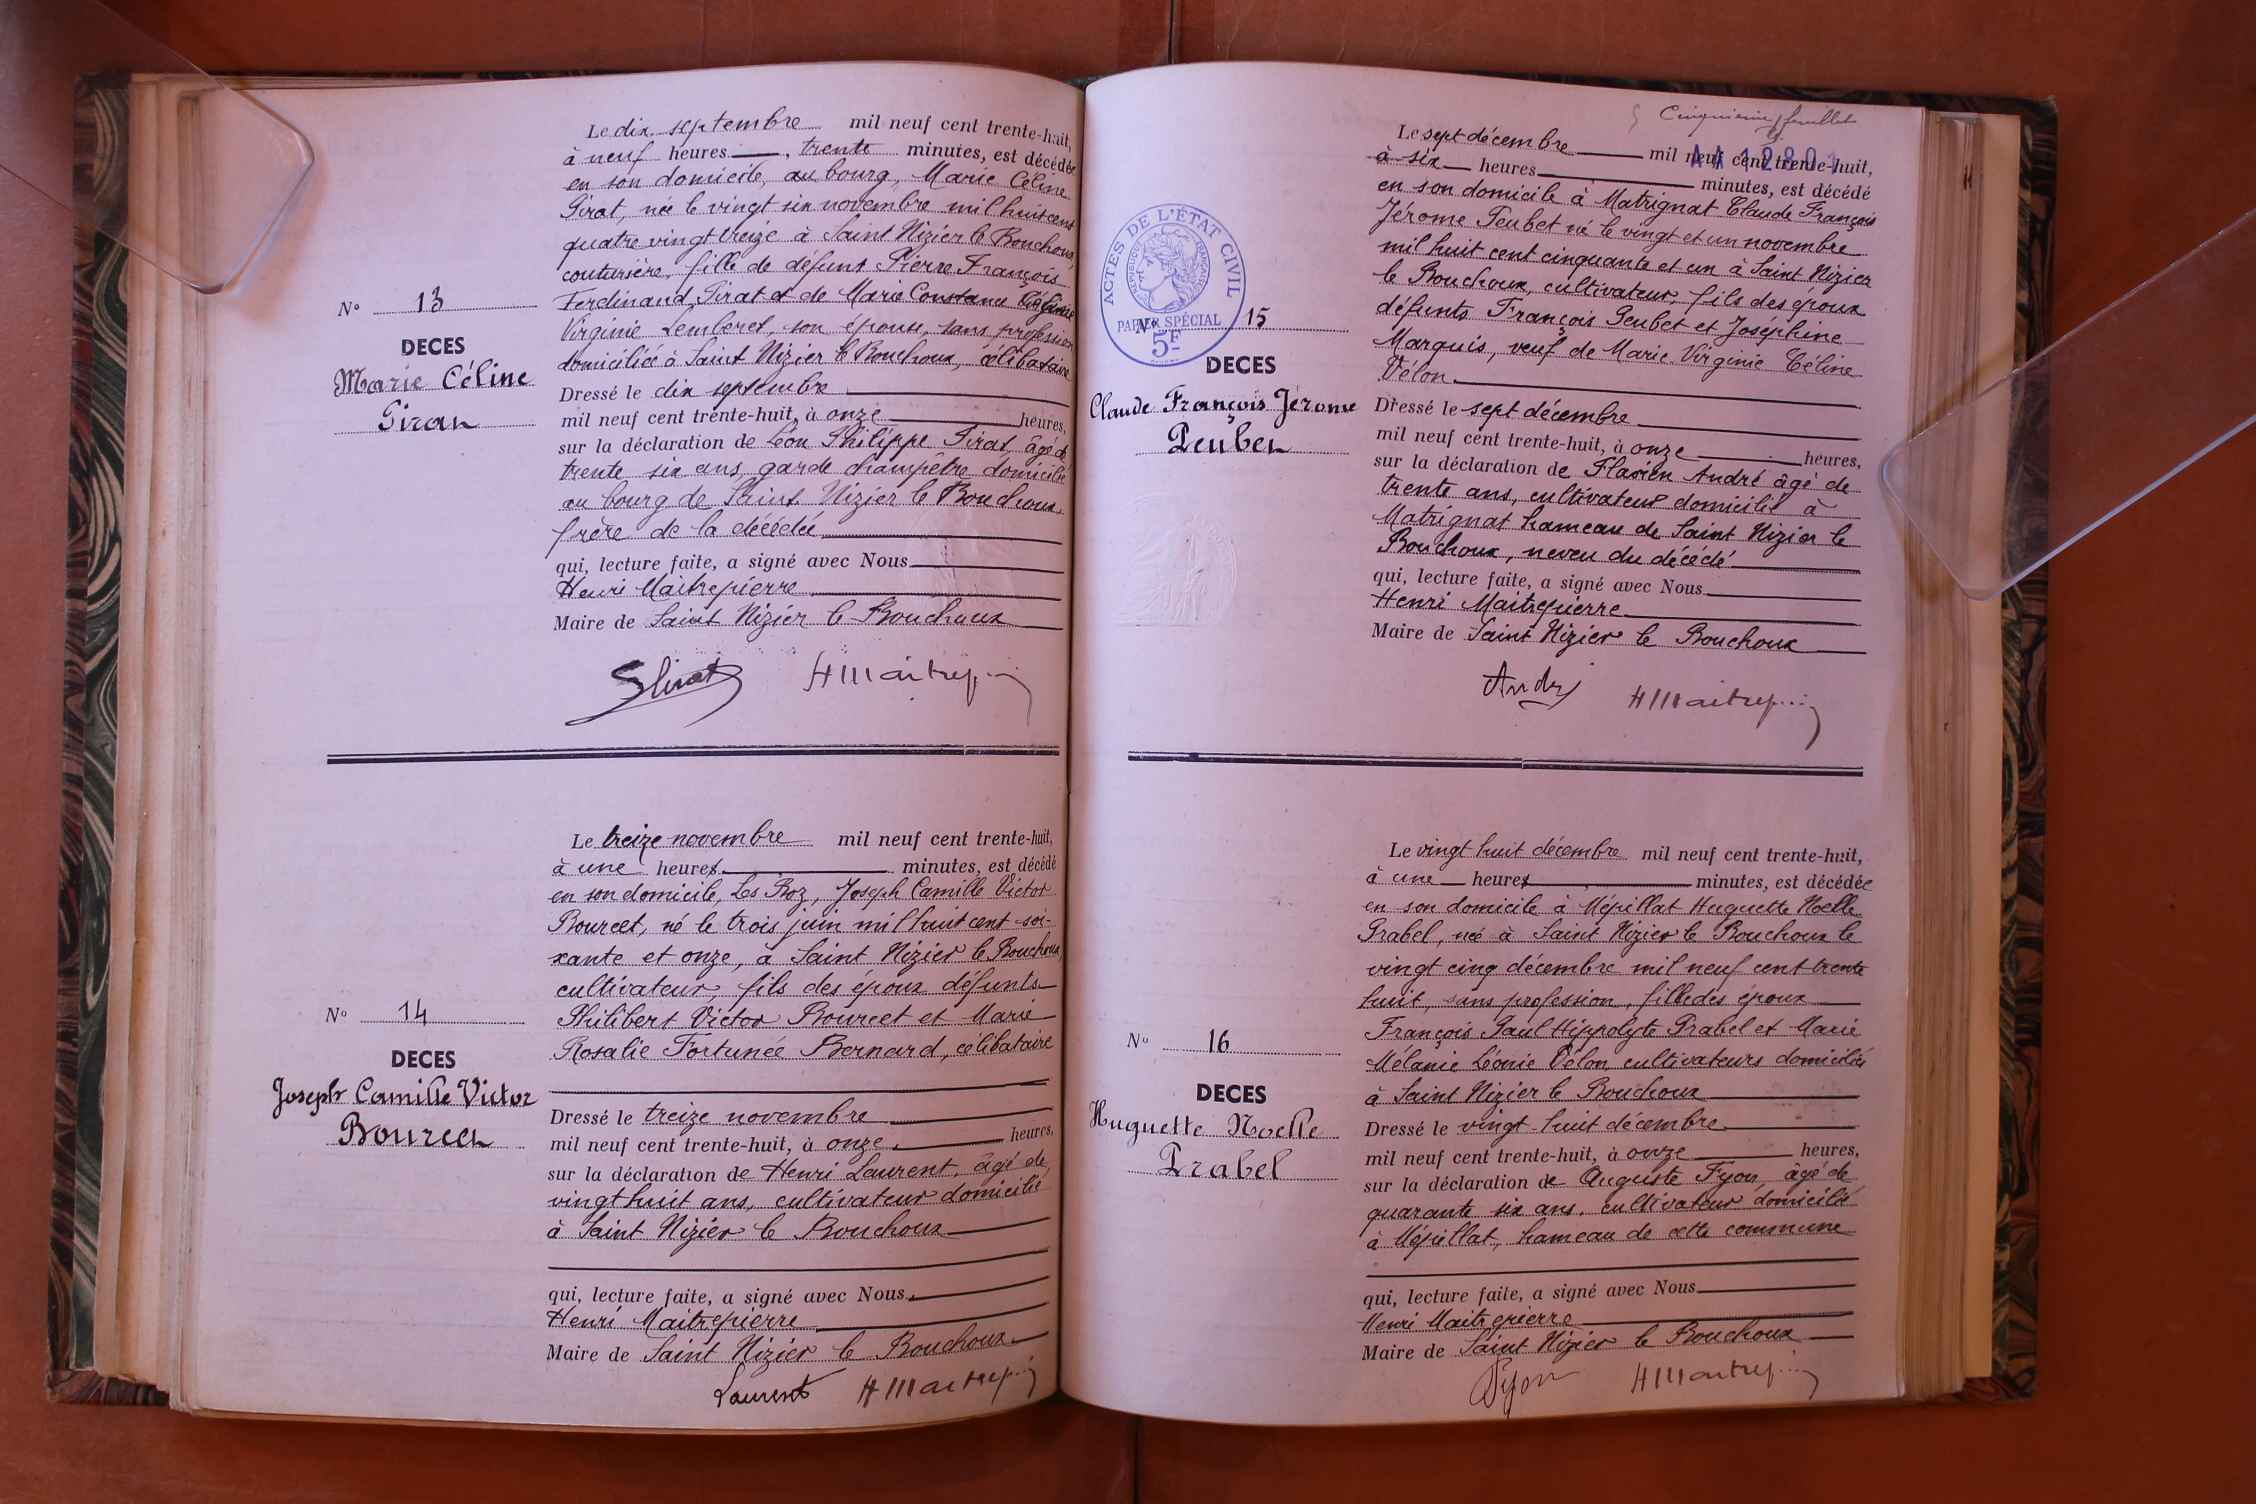 Le dix septembre mil neuf cent trente-huit,
à neuf heures, trente minutes, est décédée
en son domicile, au bourg, Marie Céline
Pirat, née le vingt six novembre mil huit cent
quatre vingt treize à Saint Nizier le Bouchoux,
couturière, fille de défunt Pierre François
Ferdinand Pirat et de Marie Constance
Virginie Lemberet, son épouse, sans profession
domiciliée à Saint Nizier le Bouchoux, célibataire
Dressé le dix septembre
mil neuf cent trente-huit, à onze heures,
sur la déclaration de Léon Philippe Pirat, âgé de
trente six ans, garde champêtre domicilié
au bourg de Saint Nizier le Bouchoux,
frère de la décédée
qui, lecture faite, a signé avec Nous
Henri Maitrepierre
Maire de Saint Nizier le Bouchoux
N° 13
DECES
Marie Céline
Pirat
HMaitrep
Le treize novembre mil neuf cent trente-huit,
à une heures minutes, est décédé
en son domicile, Les Roz, Joseph Camille Victor
Bourcet, né le trois juin mil huit cent soi-
xante et onze, à Saint Nizier le Bouchoux
cultivateur, fils des époux défunts
Philibert Victor Bourcet et Marie
Rosalie Fortunée Bernard, célibataire
Dressé le treize novembre
mil neuf cent trente-huit, à onze heures,
sur la déclaration de Henri Laurent, âgé de
vingt huit ans, cultivateur domicilié
à Saint Nizier le Bouchoux
qui, lecture faite, a signé avec Nous
Henri Maitrepierre
Maire de Saint Nizier le Bouchoux
N° 14
DECES
Joseph Camille Victor
Bourcet
Laurent HMaitrep
Cinquième feuillet
Le sept décembre mil neuf cent trente-huit,
à six heures minutes, est décédé
en son domicile à Matrignat Claude François
Jérome Peubet né le vingt et un novembre
mil huit cent cinquante et un à Saint Nizier
le Bouchoux, cultivateur, fils des époux
défunts François Peubet et Joséphine
Marquis, veuf de Marie Virginie Céline
Vélon
Dressé le sept décembre
mil neuf cent trente-huit, à onze heures,
sur la déclaration de Flavien André âgé de
trente ans, cultivateur domicilié à
Matrignat hameau de Saint Nizier le
Bouchoux, neveu du décédé
qui, lecture faite, a signé avec Nous
Henri Maitrepierre
Maire de Saint Nizier le Bouchoux
ACTES DE L'ÉTAT CIVIL
RÉPUBLIQUE FRANÇAISE
PAPIER SPÉCIAL
5F
N° 15
DECES
Claude François Jérome
Peubet
André HMaitrep
Le vingt huit décembre mil neuf cent trente-huit,
à une heures minutes, est décédée
en son domicile à Mépillat Huguette Noelle
Prabel, née à Saint Nizier le Bouchoux le
vingt cinq décembre mil neuf cent trente
huit, sans profession, fille des époux
François Paul Hippolyte Prabel et Marie
Mélanie Léonie Vélon cultivateurs domiciliés
à Saint Nizier le Bouchoux
Dressé le vingt-huit décembre
mil neuf cent trente-huit, à onze heures,
sur la déclaration de Auguste Fyon, âgé de
quarante six ans, cultivateur domicilié
à Mépillat, hameau de cette commune
qui, lecture faite, a signé avec Nous
Henri Maitrepierre
Maire de Saint Nizier le Bouchoux
N° 16
DECES
Huguette Noelle
Prabel
Fyon HMaitrep